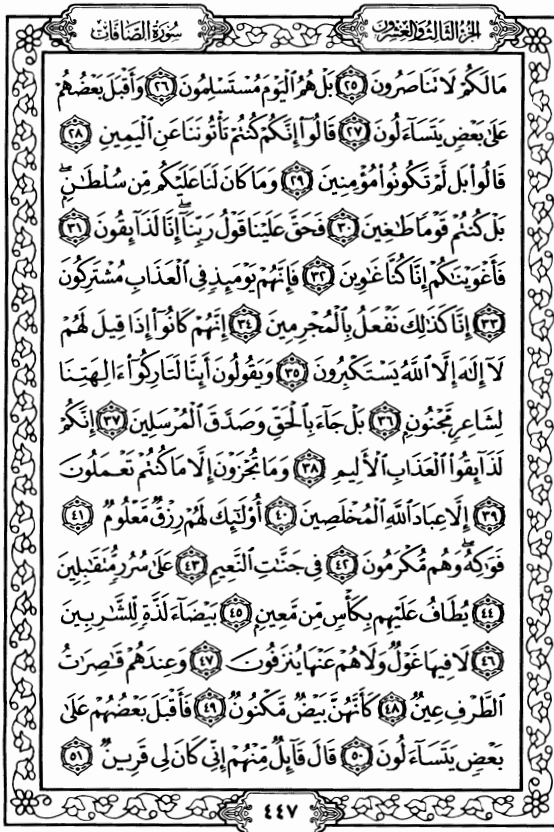 الجزء الثالث والعشرون
سورة الصافات
مَا لَكُمْ لَا تَنَاصَرُونَ ٢٥ بَلْ هُمُ الْيَوْمَ مُسْتَسْلِمُونَ ٢٦ وَأَقْبَلَ بَعْضُهُمْ
عَلَىٰ بَعْضٍ يَتَسَاءَلُونَ ٢٧ قَالُوا إِنَّكُمْ كُنتُمْ تَأْتُونَنَا عَنِ الْيَمِينِ ٢٨
قَالُوا بَل لَّمْ تَكُونُوا مُؤْمِنِينَ ٢٩ وَمَا كَانَ لَنَا عَلَيْكُم مِّن سُلْطَٰنٍ ۖ
بَلْ كُنتُمْ قَوْمًا طَٰغِينَ ٣٠ فَحَقَّ عَلَيْنَا قَوْلُ رَبِّنَا ۖ إِنَّا لَذَائِقُونَ ٣١
فَأَغْوَيْنَٰكُمْ إِنَّا كُنَّا غَٰوِينَ ٣٢ فَإِنَّهُمْ يَوْمَئِذٍ فِي الْعَذَابِ مُشْتَرِكُونَ
٣٣ إِنَّا كَذَٰلِكَ نَفْعَلُ بِالْمُجْرِمِينَ ٣٤ إِنَّهُمْ كَانُوا إِذَا قِيلَ لَهُمْ
لَا إِلَٰهَ إِلَّا اللَّهُ يَسْتَكْبِرُونَ ٣٥ وَيَقُولُونَ أَئِنَّا لَتَارِكُوا ءَالِهَتِنَا
لِشَاعِرٍ مَّجْنُونٍ ٣٦ بَلْ جَاءَ بِالْحَقِّ وَصَدَّقَ الْمُرْسَلِينَ ٣٧ إِنَّكُمْ
لَذَائِقُوا الْعَذَابِ الْأَلِيمِ ٣٨ وَمَا تُجْزَوْنَ إِلَّا مَا كُنتُمْ تَعْمَلُونَ
٣٩ إِلَّا عِبَادَ اللَّهِ الْمُخْلَصِينَ ٤٠ أُولَٰئِكَ لَهُمْ رِزْقٌ مَّعْلُومٌ ٤١
فَوَٰكِهُ ۖ وَهُم مُّكْرَمُونَ ٤٢ فِي جَنَّٰتِ النَّعِيمِ ٤٣ عَلَىٰ سُرُرٍ مُّتَقَٰبِلِينَ
٤٤ يُطَافُ عَلَيْهِم بِكَأْسٍ مِّن مَّعِينٍ ٤٥ بَيْضَاءَ لَذَّةٍ لِّلشَّٰرِبِينَ
٤٦ لَا فِيهَا غَوْلٌ وَلَا هُمْ عَنْهَا يُنزَفُونَ ٤٧ وَعِندَهُمْ قَٰصِرَٰتُ
الطَّرْفِ عِينٌ ٤٨ كَأَنَّهُنَّ بَيْضٌ مَّكْنُونٌ ٤٩ فَأَقْبَلَ بَعْضُهُمْ عَلَىٰ
بَعْضٍ يَتَسَاءَلُونَ ٥٠ قَالَ قَائِلٌ مِّنْهُمْ إِنِّي كَانَ لِي قَرِينٌ ٥١
٤٤٧